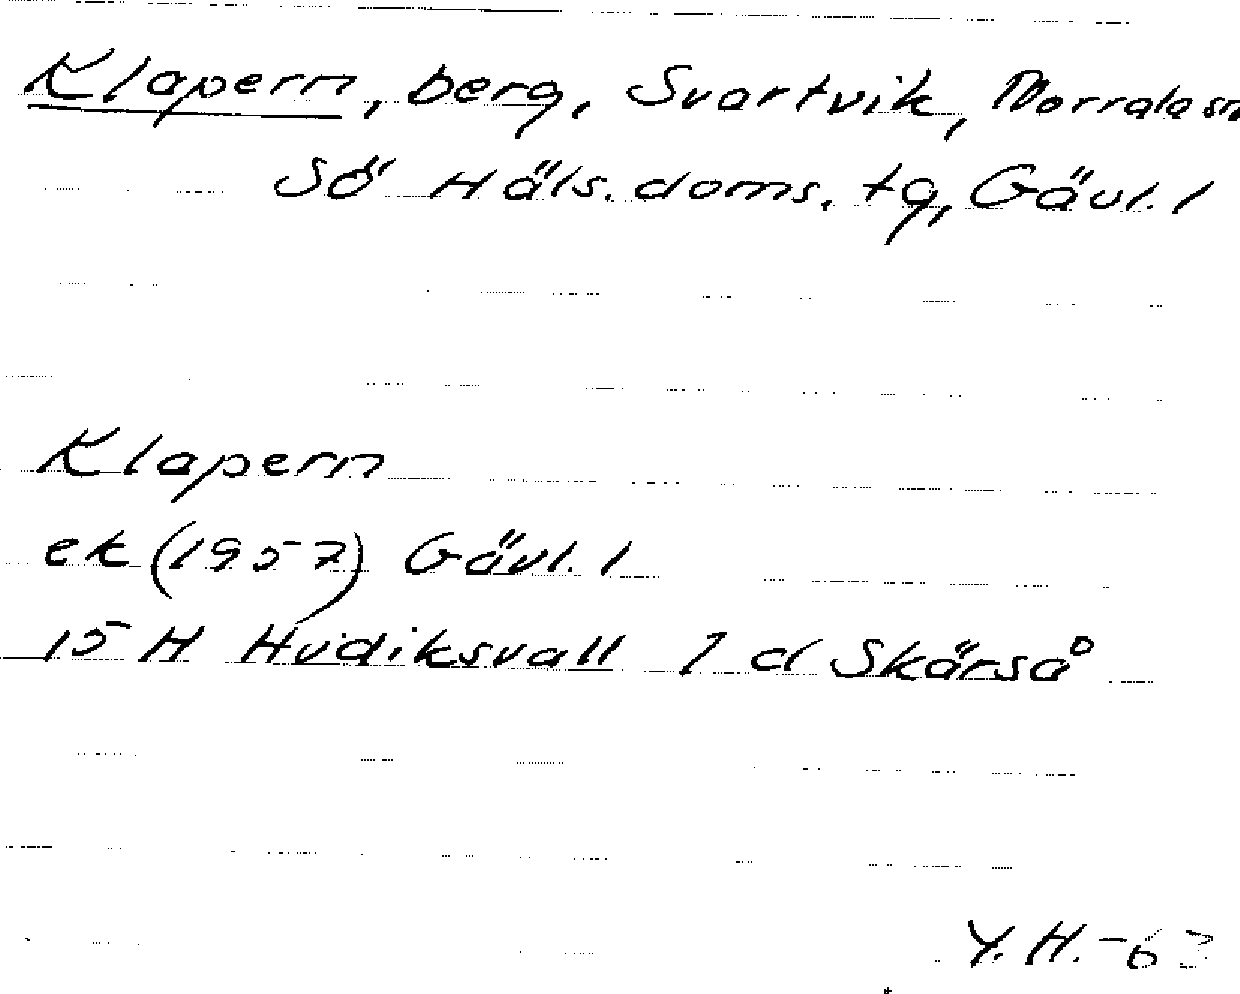 Klapern, berg, Svartvik, Norrala sn
Sö Häls. doms. tg, Gävl. l
Klapern
ek (1957) Gävl. l
15 H Hudiksvall 7 d Skärså
Y. H. -63